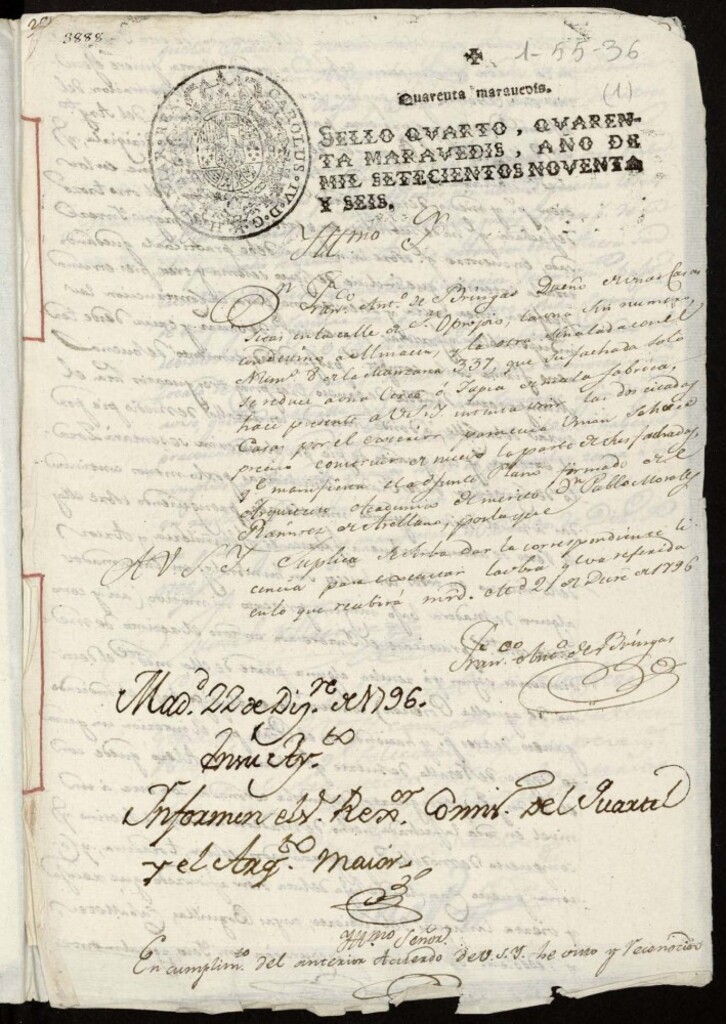 3888
1-55-36
(1)
Quarenta maravedis.
SELLO QVARTO, QVAREN-
TA MARAVEDIS, AÑO DE
MIL SETECIENTOS NOVENTA
Y SEIS.
CAROLUS·IV·D·G·
Yllmo Sr
Dn Franco Anto de Bringas Dueño de unas Casas
sitas en la calle de Sn Opropio, la una sin numero,
y la otra señalada con el
Numo 8 de la Manzana 337, que su fachada solo
se reduce a una Cerca ó Tapia de mala fabrica,
hace presente a V.S.Y. intenta unir las dos citadas
Casas por el exterior
preciso construir de nuevo la parte de
manifiesta el adjunto Plano firmado de el
Arquitecto Academico de merito Dn Pablo Morales
Ramirez de Arellano, por lo que
A V.S.Y. Suplica se sirba dar la correspondiente li
cencia para executar la obra
que recibirá mrd. 21 de Dizre de 1796
Franco Anto de Bringas
Madd 22 de Dizre de 1796.
En su Ayto
Informen el Sr. Rexor Comis. del Quartel
y el Arqto maior.
Yllmo Señor
En cumplimto del anterior Acuerdo de V.S.Y. he visto y reconocido